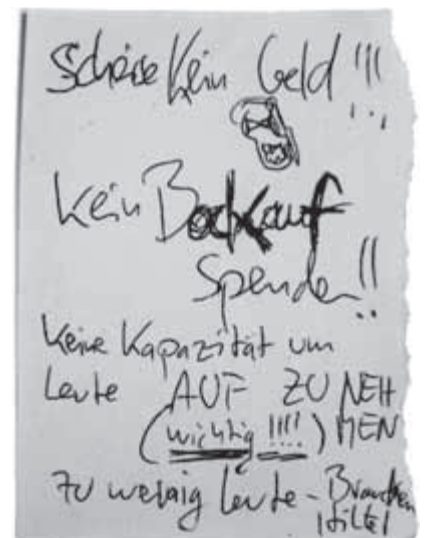 Scheise Kein Geld !!!
Kein Bock auf
Spenden!!
Keine Kapazität um
Leute AUF ZU NEH
(wichtig !!!!) MEN
zu wenig Leute - Brauchen